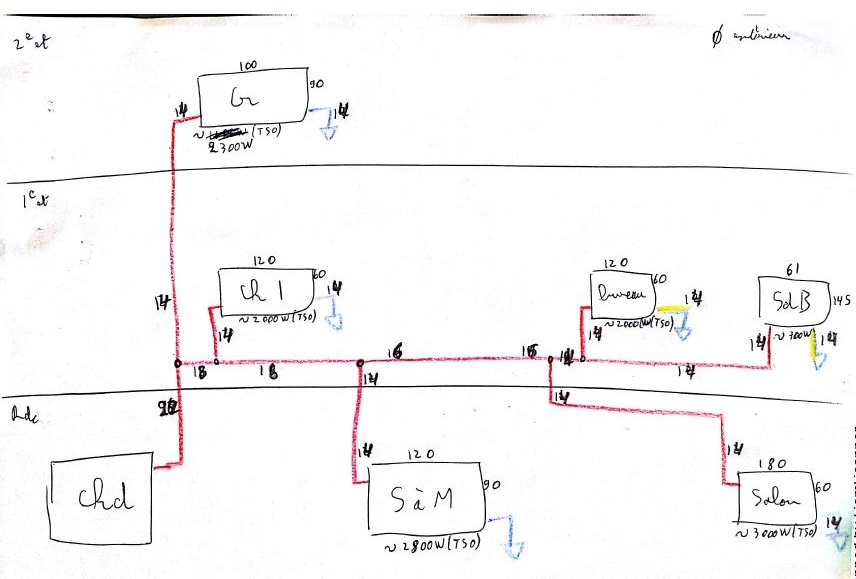 2e et
Ø extérieur
100
Gr
90
14
14
~ (T50)
2300W
1e et
120
Ch 1
60
14
~ 2000W (T50)
120
bureau
60
14
~ 2000W (T50)
61
SdB
145
~ 700W
14
14
14
14
14
14
18
18
16
16
14
14
14
14
Rdc
14
14
Chd
120
S à M
90
~ 2800W (T50)
180
Salon
60
14
~ 3000W (T50)